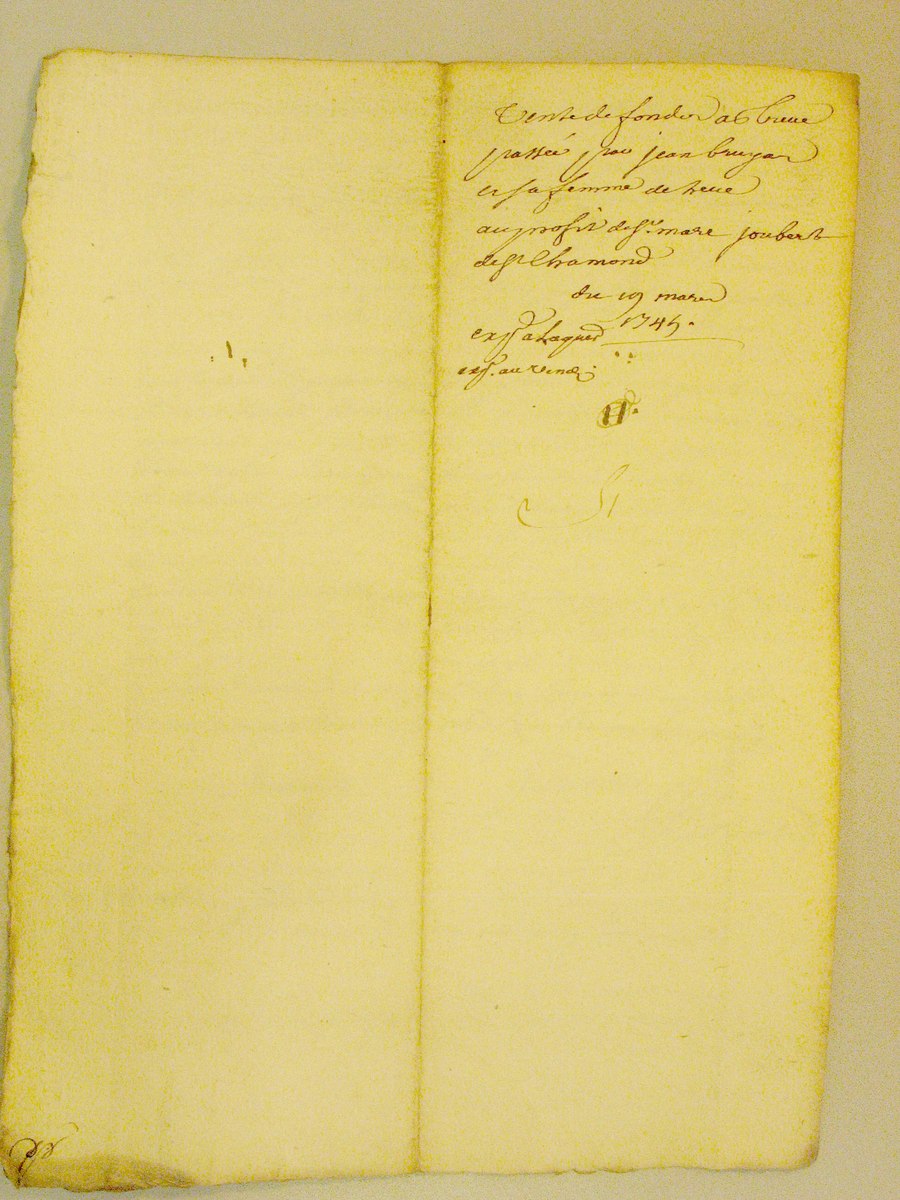 Vente de fonds a
passée par jean bruyas
et sa femme de
au profit de sr. marc joubert
de st Chamond
du 19 mars
1745.
exp. a
exp. au
11.